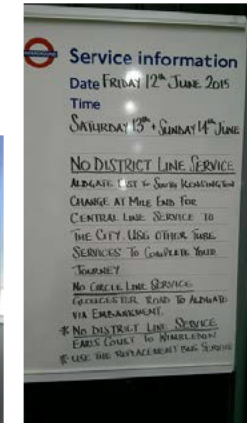 UNDERGROUND
Service information
Date FRIDAY 12th JUNE 2015
Time
SATURDAY 13th + SUNDAY 14th JUNE
NO DISTRICT LINE SERVICE
ALDGATE EAST TO SOUTH KENSINGTON
CHANGE AT MILE END FOR
CENTRAL LINE SERVICE TO
THE CITY. USE OTHER TUBE
SERVICES TO COMPLETE YOUR
JOURNEY
NO CIRCLE LINE SERVICE
GLOUCESTER ROAD TO ALDGATE
VIA EMBANKMENT.
* NO DISTRICT LINE SERVICE
EARLS COURT TO WIMBLEDON
* USE THE REPLACEMENT BUS SERVICE